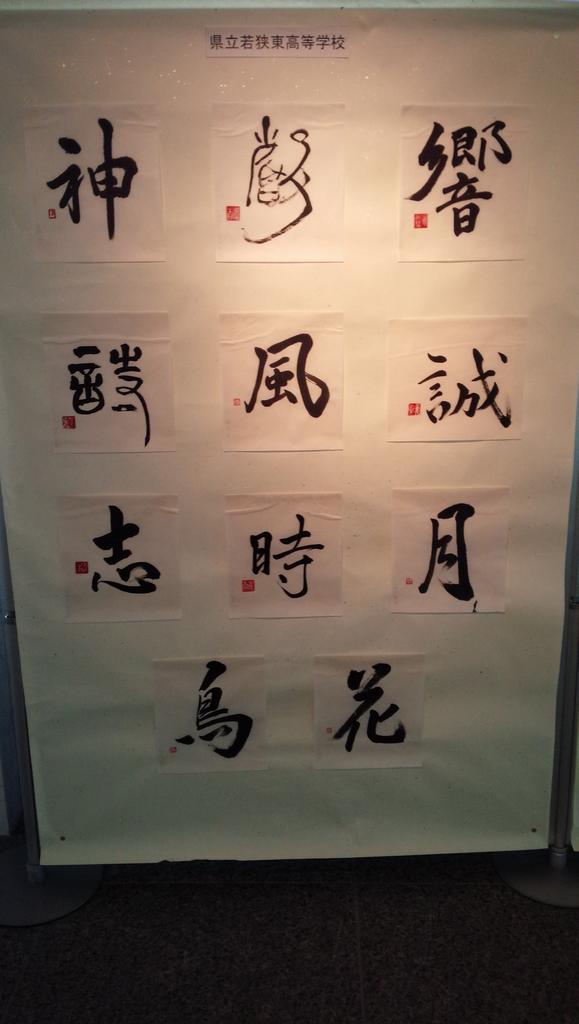 県立若狭東高等学校
響
神
誠
風
月
時
志
花
鳥